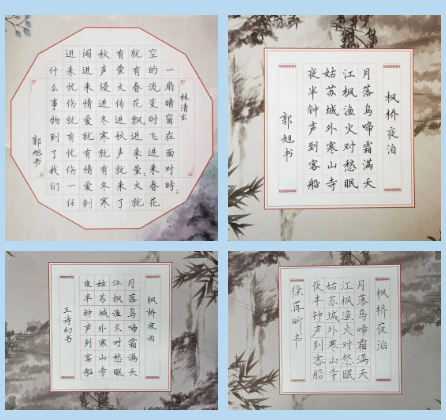 林清玄
一扇晴窗在面对时
空的流变时飞进来春花
就有春花飘进来萤火就
有萤火传进秋声就来了
秋声侵进冬寒就有冬寒
闯进来情爱就有情爱刻
进来忧伤就有忧伤一任
什么事物到了我们
郭旭书
枫桥夜泊
月落乌啼霜满天
江枫渔火对愁眠
姑苏城外寒山寺
夜半钟声到客船
郭旭书
枫桥夜泊
月落乌啼霜满天
江枫渔火对愁眠
姑苏城外寒山寺
夜半钟声到客船
王诗幻书
枫桥夜泊
月落乌啼霜满天
江枫渔火对愁眠
姑苏城外寒山寺
夜半钟声到客船
徐再昕书